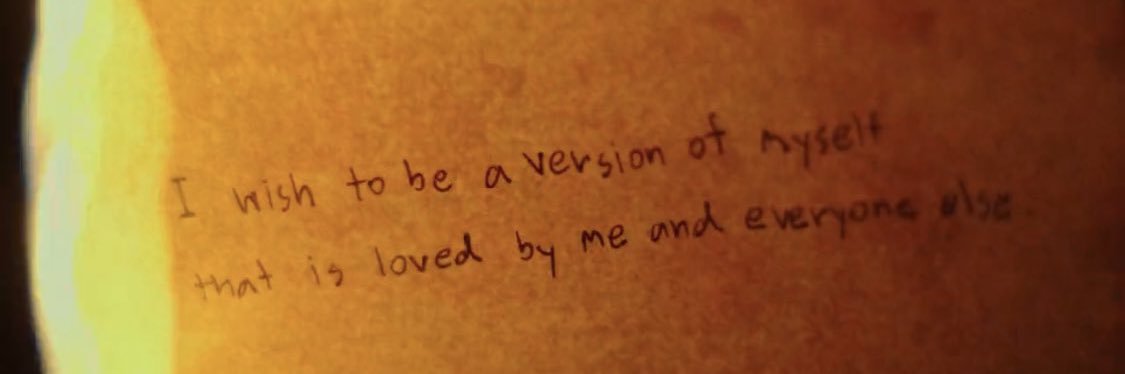 I wish to be a version of myself
that is loved by me and everyone else.